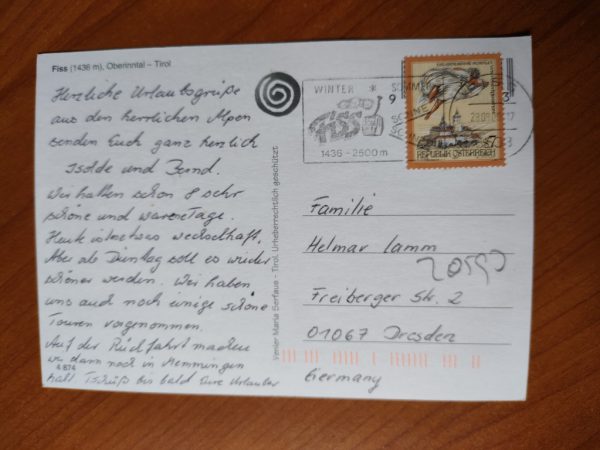 Fiss (1436 m), Oberinntal – Tirol
Herzliche Urlaubsgrüße
aus den herrlichen Alpen
senden Euch ganz herzlich
Isolde und Bernd.
Wir hatten schon 8 sehr
schöne und warme Tage.
Heute ist es etwas wechselhaft,
Aber ab Dienstag soll es wieder
schöner werden. Wir haben
uns auch noch einige schöne
Touren vorgenommen.
Auf der Rückfahrt machen
wir dann noch in Memmingen
halt. Tschüß bis bald Eure Urlauber
4 874
Verlag Maria Serfaus – Tirol. Urheberrechtlich geschützt
WINTER * SOMMER
FISS
1436 - 2500 m
7
REPUBLIK ÖSTERREICH
Familie
Helmar Lamm
Freiberger Str. 2
01067 Dresden
Germany